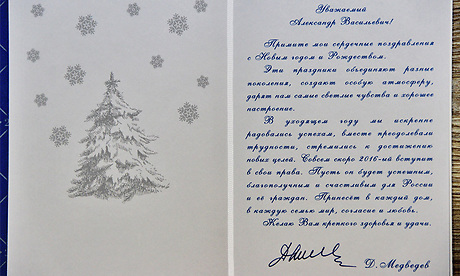 Уважаемый
Александр Васильевич!
Примите мои сердечные поздравления
с Новым годом и Рождеством.
Эти праздники объединяют разные
поколения, создают особую атмосферу,
дарят нам самые светлые чувства и хорошее
настроение.
В уходящем году мы искренне
радовались успехам, вместе преодолевали
трудности, стремились к достижению
новых целей. Совсем скоро 2016-ый вступит
в свои права. Пусть он будет успешным,
благополучным и счастливым для России
и её граждан. Принесёт в каждый дом,
в каждую семью мир, согласие и любовь.
Желаю Вам крепкого здоровья и удачи.
Д. Медведев